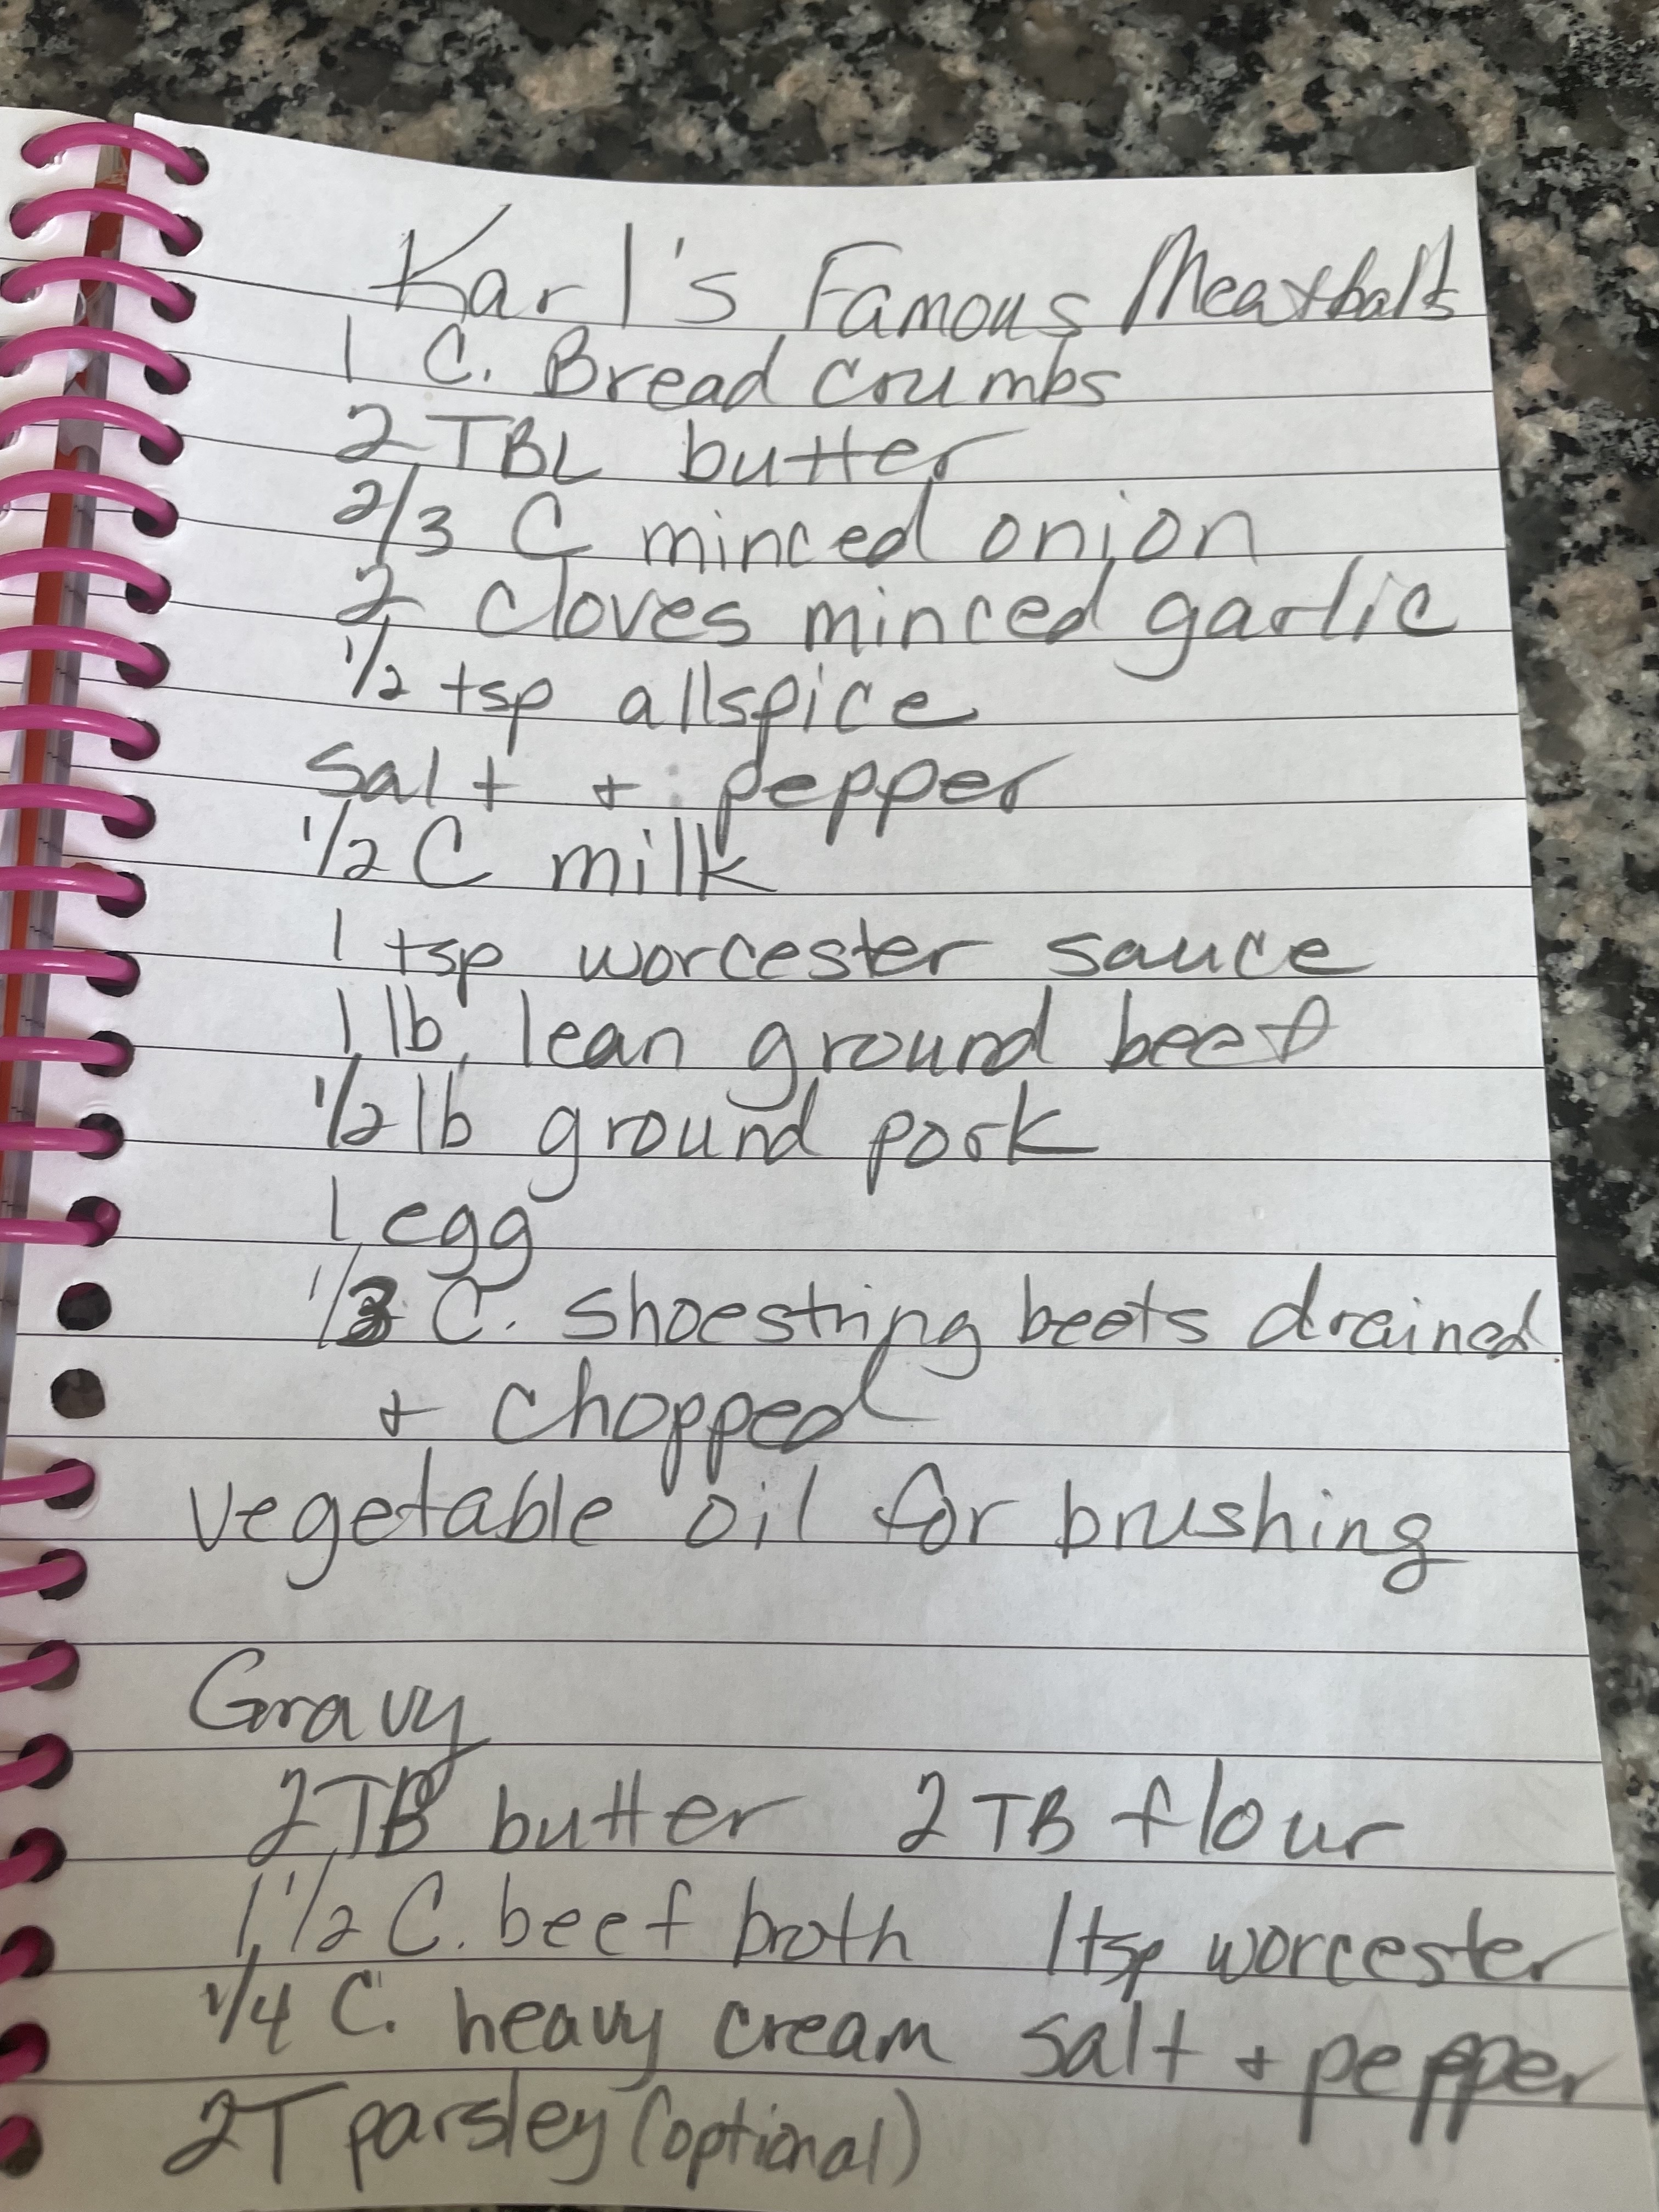 Karl's Famous Meatballs
1 C. Bread crumbs
2 TBL butter
2/3 C minced onion
2 cloves minced garlic
1/2 tsp allspice
Salt + pepper
1/2 C milk
1 tsp worcester sauce
1 lb, lean ground beef
1/2 lb ground pork
1 egg
1/3 C. shoestring beets drained
+ chopped
vegetable oil for brushing
Gravy
2 TB butter 2 TB flour
1 1/2 C. beef broth 1 tsp worcester
1/4 C. heavy cream salt + pepper
2T parsley (optional)